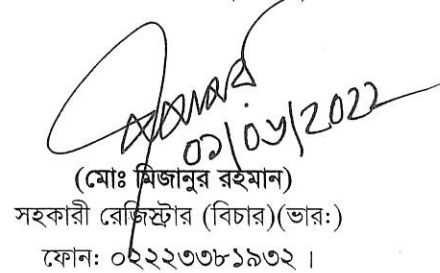 ০১/০৬/2022
(মোঃ মিজানুর রহমান)
সহকারী রেজিস্ট্রার (বিচার)(ভার:)
ফোন: ০২২২৩৩৮১৯৩২ ।